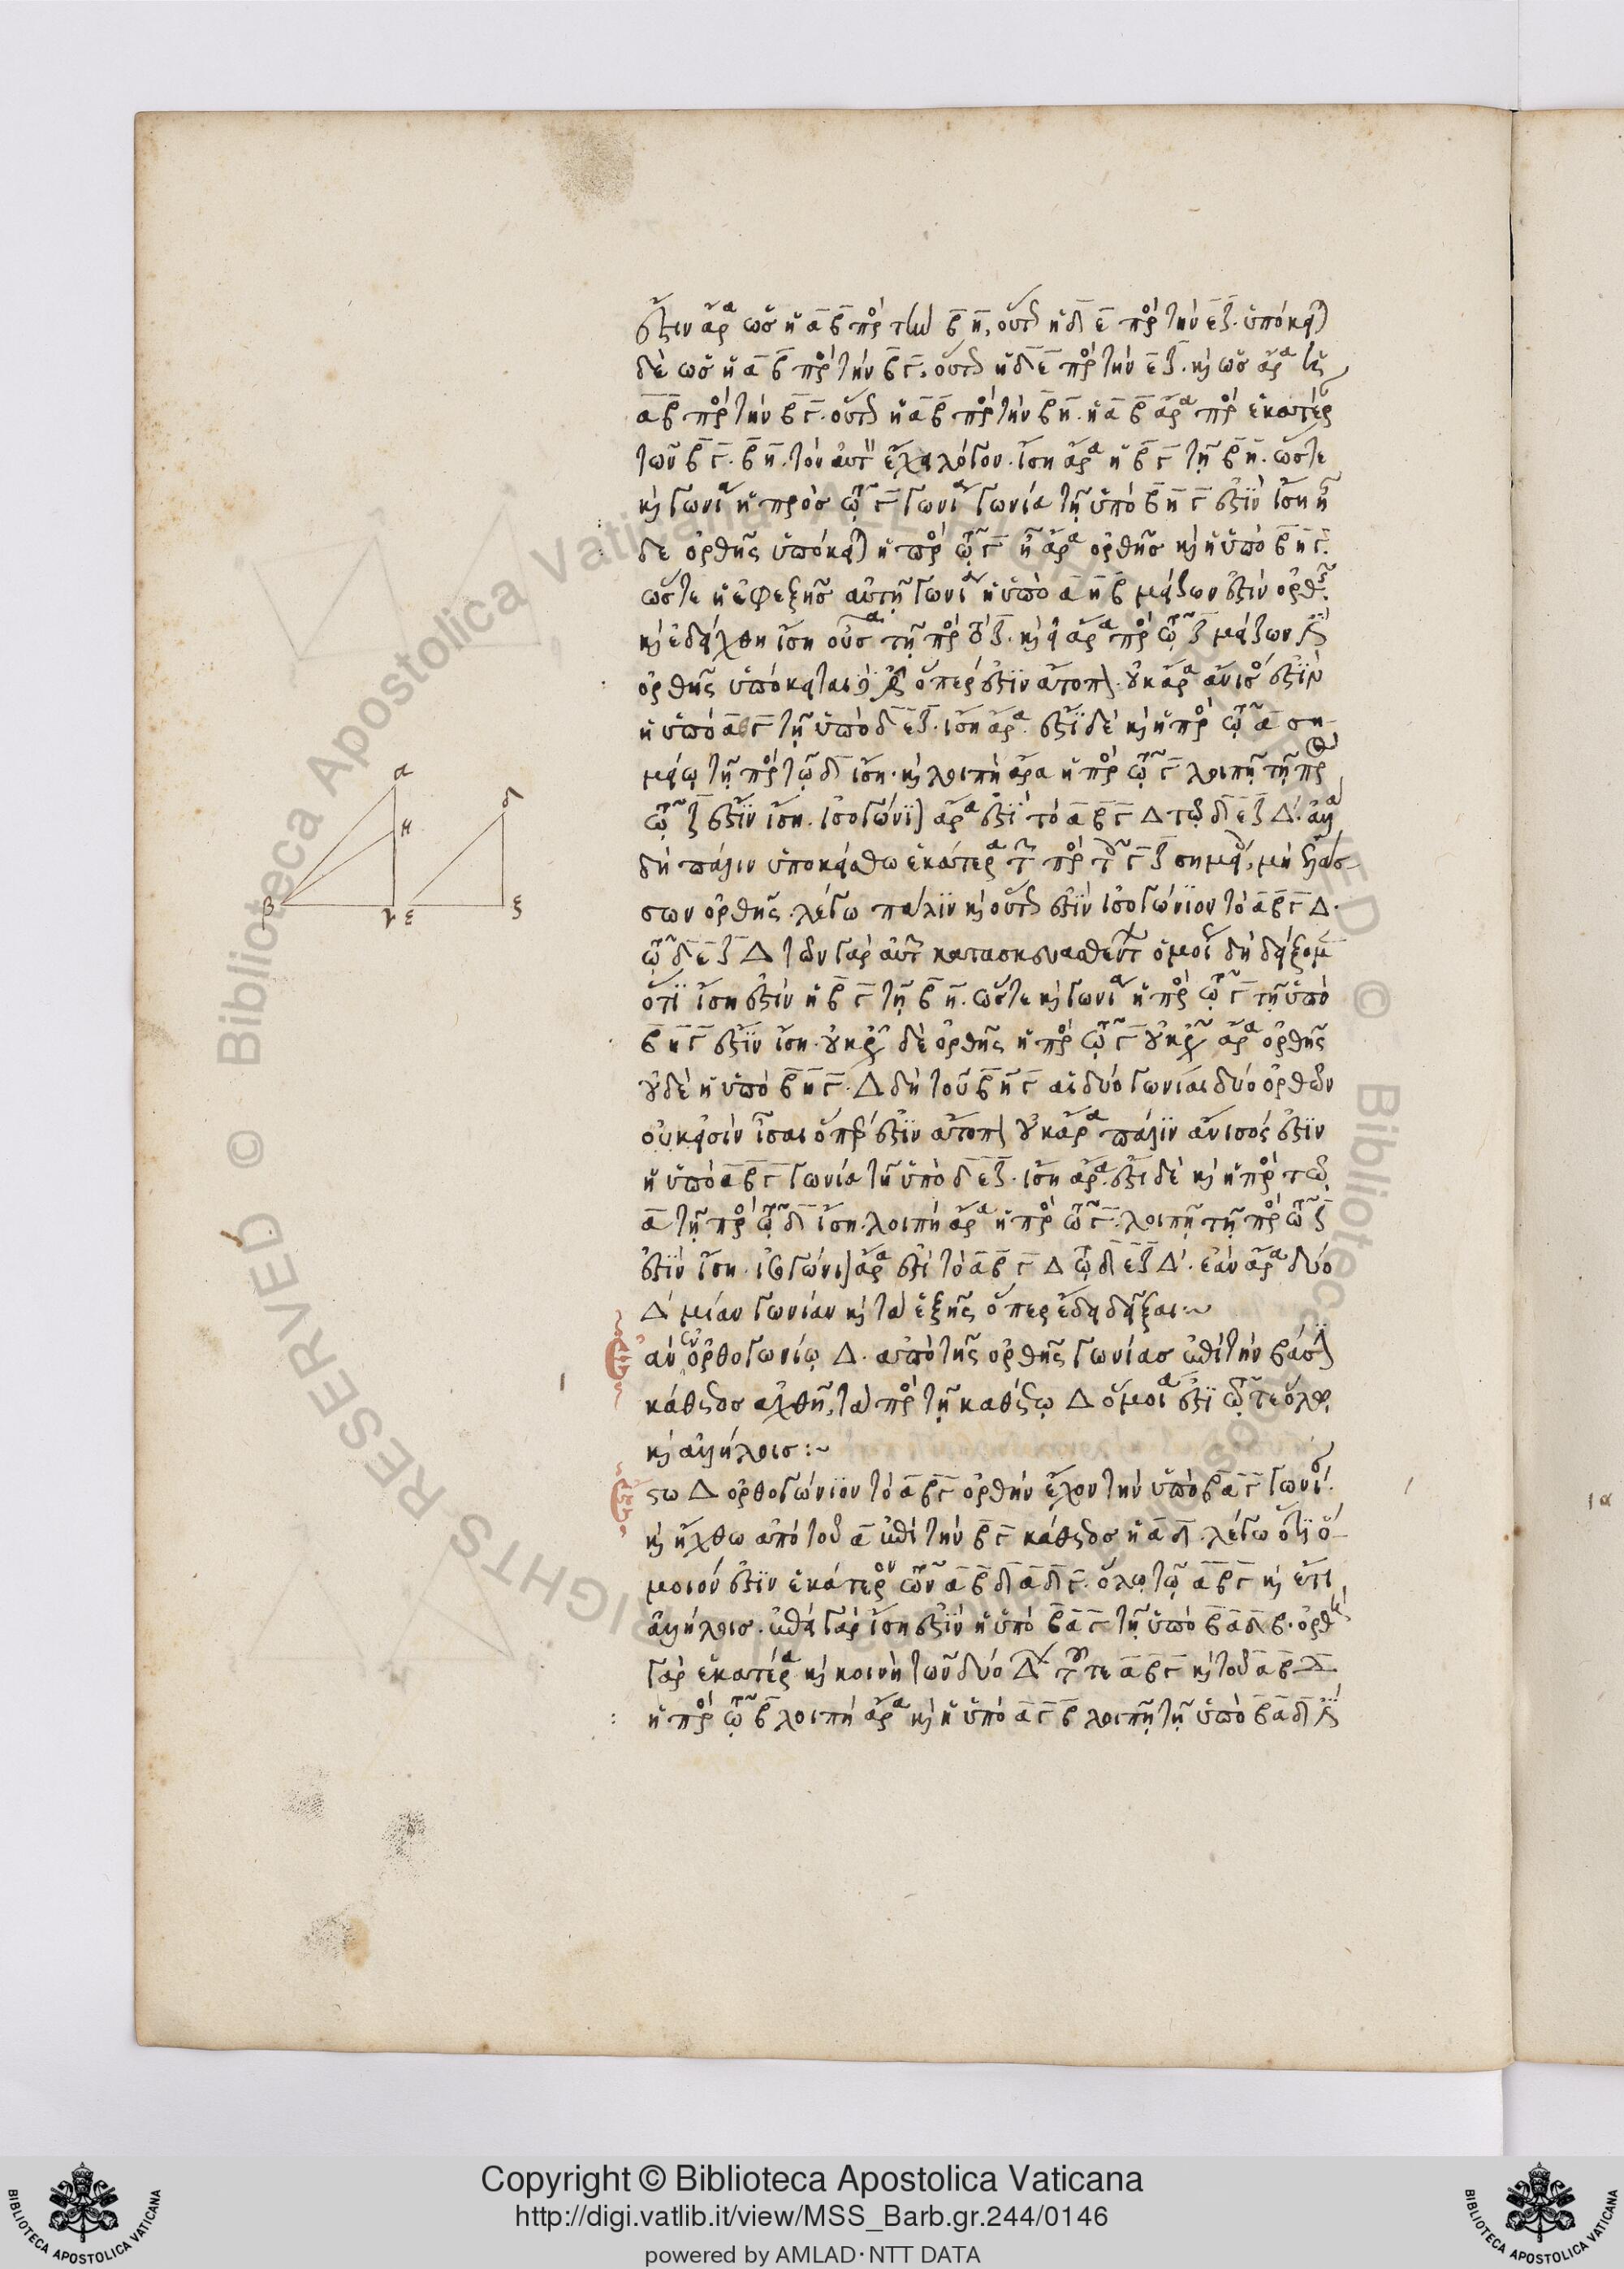 ἐστιν ἄρα ὡς ἡ α β πρὸς τὴν β η, οὕτως ἡ δ ε πρὸς τὴν ε ζ. ὑπόκειται
δὲ ὡς ἡ α β πρὸς τὴν β γ. οὕτως ἡ δ ε πρὸς τὴν ε ζ. καὶ ὡς ἄρα ἡ
α β πρὸς τὴν β γ. οὕτως ἡ α β πρὸς τὴν β η. ἡ α β ἄρα πρὸς ἑκατέραν
τῶν β γ. β η. τὸν αὐτὸν ἔχει λόγον. ἴση ἄρα ἡ β γ τῇ β η. ὥστε
καὶ γωνία ἡ πρὸς τῷ γ γωνία γωνίᾳ τῇ ὑπὸ β η γ ἐστὶν ἴση
δὲ ὀρθῆς ὑπόκειται ἡ πρὸς τῷ γ ἄρα ὀρθῆς καὶ ἡ ὑπὸ β η γ.
ὥστε ἡ ἐφεξῆς αὐτῇ γωνία ἡ ὑπὸ α η β μείζων ἐστὶν ὀρθῆς.
καὶ ἐδείχθη ἴση οὖσα τῇ πρὸς τῷ ζ. καὶ ἡ ἄρα πρὸς τῷ ζ μείζων ἐστὶν
ὀρθῆς ὑπόκειται ὅπερ ἐστὶν ἄτοπον. οὐκ ἄρα ἄνισός ἐστιν
ἡ ὑπὸ α β γ τῇ ὑπὸ δ ε ζ. ἴση ἄρα. ἔστι δὲ καὶ ἡ πρὸς τῷ α ση
μείῳ τῇ πρὸς τῷ δ ἴση. καὶ λοιπὴ ἄρα ἡ πρὸς τῷ γ λοιπῇ τῇ πρὸς
τῷ ζ ἐστὶν ἴση. ἰσογώνιον ἄρα ἐστὶ τὸ α β γ Δ τῷ δ ε ζ Δ. ἀλλὰ
δὴ πάλιν ὑποκείσθω ἑκατέρα τῶν πρὸς τοῖς γ ζ σημείοις, μὴ ἐλάσ
σων ὀρθῆς. λέγω πάλιν καὶ οὕτως ἐστὶν ἰσογώνιον τὸ α β γ Δ.
τῷ δ ε ζ Δ τῶν γὰρ αὐτῶν κατασκευασθέντων ὁμοίως δὴ δείξομεν
ὅτι ἴση ἐστὶν ἡ β γ τῇ β η. ὥστε καὶ γωνία ἡ πρὸς τῷ γ τῇ ὑπὸ
β η γ ἐστὶν ἴση. οὐκ ἐλάττων δὲ ὀρθῆς ἡ πρὸς τῷ γ οὐκ ἐλάττων ἄρα ὀρθῆς
οὐδὲ ἡ ὑπὸ β η γ. Δ δὴ τοῦ β η γ αἱ δύο γωνίαι δύο ὀρθῶν
οὐκ εἰσὶν ἴσαι ὅπερ ἐστὶν ἄτοπον οὐκ ἄρα πάλιν ἄνισός ἐστιν
ἡ ὑπὸ α β γ γωνία τῇ ὑπὸ δ ε ζ. ἴση ἄρα. ἔστι δὲ καὶ ἡ πρὸς τῷ
α τῇ πρὸς τῷ δ ἴση. λοιπὴ ἄρα ἡ πρὸς τῷ γ. λοιπῇ τῇ πρὸς τῷ ζ
ἐστὶν ἴση. ἰσογώνιον ἄρα ἐστὶ τὸ α β γ Δ τῷ δ ε ζ Δ. ἐὰν ἄρα δύο
Δ μίαν γωνίαν καὶ τὰ ἑξῆς ὅπερ ἔδει δεῖξαι:~
Ἐὰν ἐν ὀρθογωνίῳ Δ. ἀπὸ τῆς ὀρθῆς γωνίας ἐπὶ τὴν βάσιν
κάθετος ἀχθῇ, τὰ πρὸς τῇ καθέτῳ Δ ὅμοιά ἐστι τῷ τε ὅλῳ
καὶ ἀλλήλοις:~
Ἔστω Δ ὀρθογώνιον τὸ α β γ ὀρθὴν ἔχον τὴν ὑπὸ β α γ γωνίαν.
καὶ ἤχθω ἀπὸ τοῦ α ἐπὶ τὴν β γ κάθετος ἡ α δ. λέγω ὅτι ὅ
μοιόν ἐστιν ἑκάτερον τῶν α β δ α δ γ. ὅλῳ τῷ α β γ καὶ ἔτι
ἀλλήλοις. ἐπεὶ γὰρ ἴση ἐστὶν ἡ ὑπὸ β α γ τῇ ὑπὸ β α δ β. ὀρθὴ
γὰρ ἑκατέρα καὶ κοινὴ τῶν δύο Δ τοῦ τε α β γ καὶ τοῦ α β δ
ἡ πρὸς τῷ β λοιπὴ ἄρα καὶ ἡ ὑπὸ α γ β λοιπῇ τῇ ὑπὸ β α δ ἐστὶν
α
η
β
γ
δ
ε
ζ
ια
© Biblioteca Apostolica Vaticana ALL RIGHTS RESERVED
Copyright © Biblioteca Apostolica Vaticana
http://digi.vatlib.it/view/MSS_Barb.gr.244/0146
powered by AMLAD·NTT DATA
BIBLIOTECA APOSTOLICA VATICANA
BIBLIOTECA APOSTOLICA VATICANA